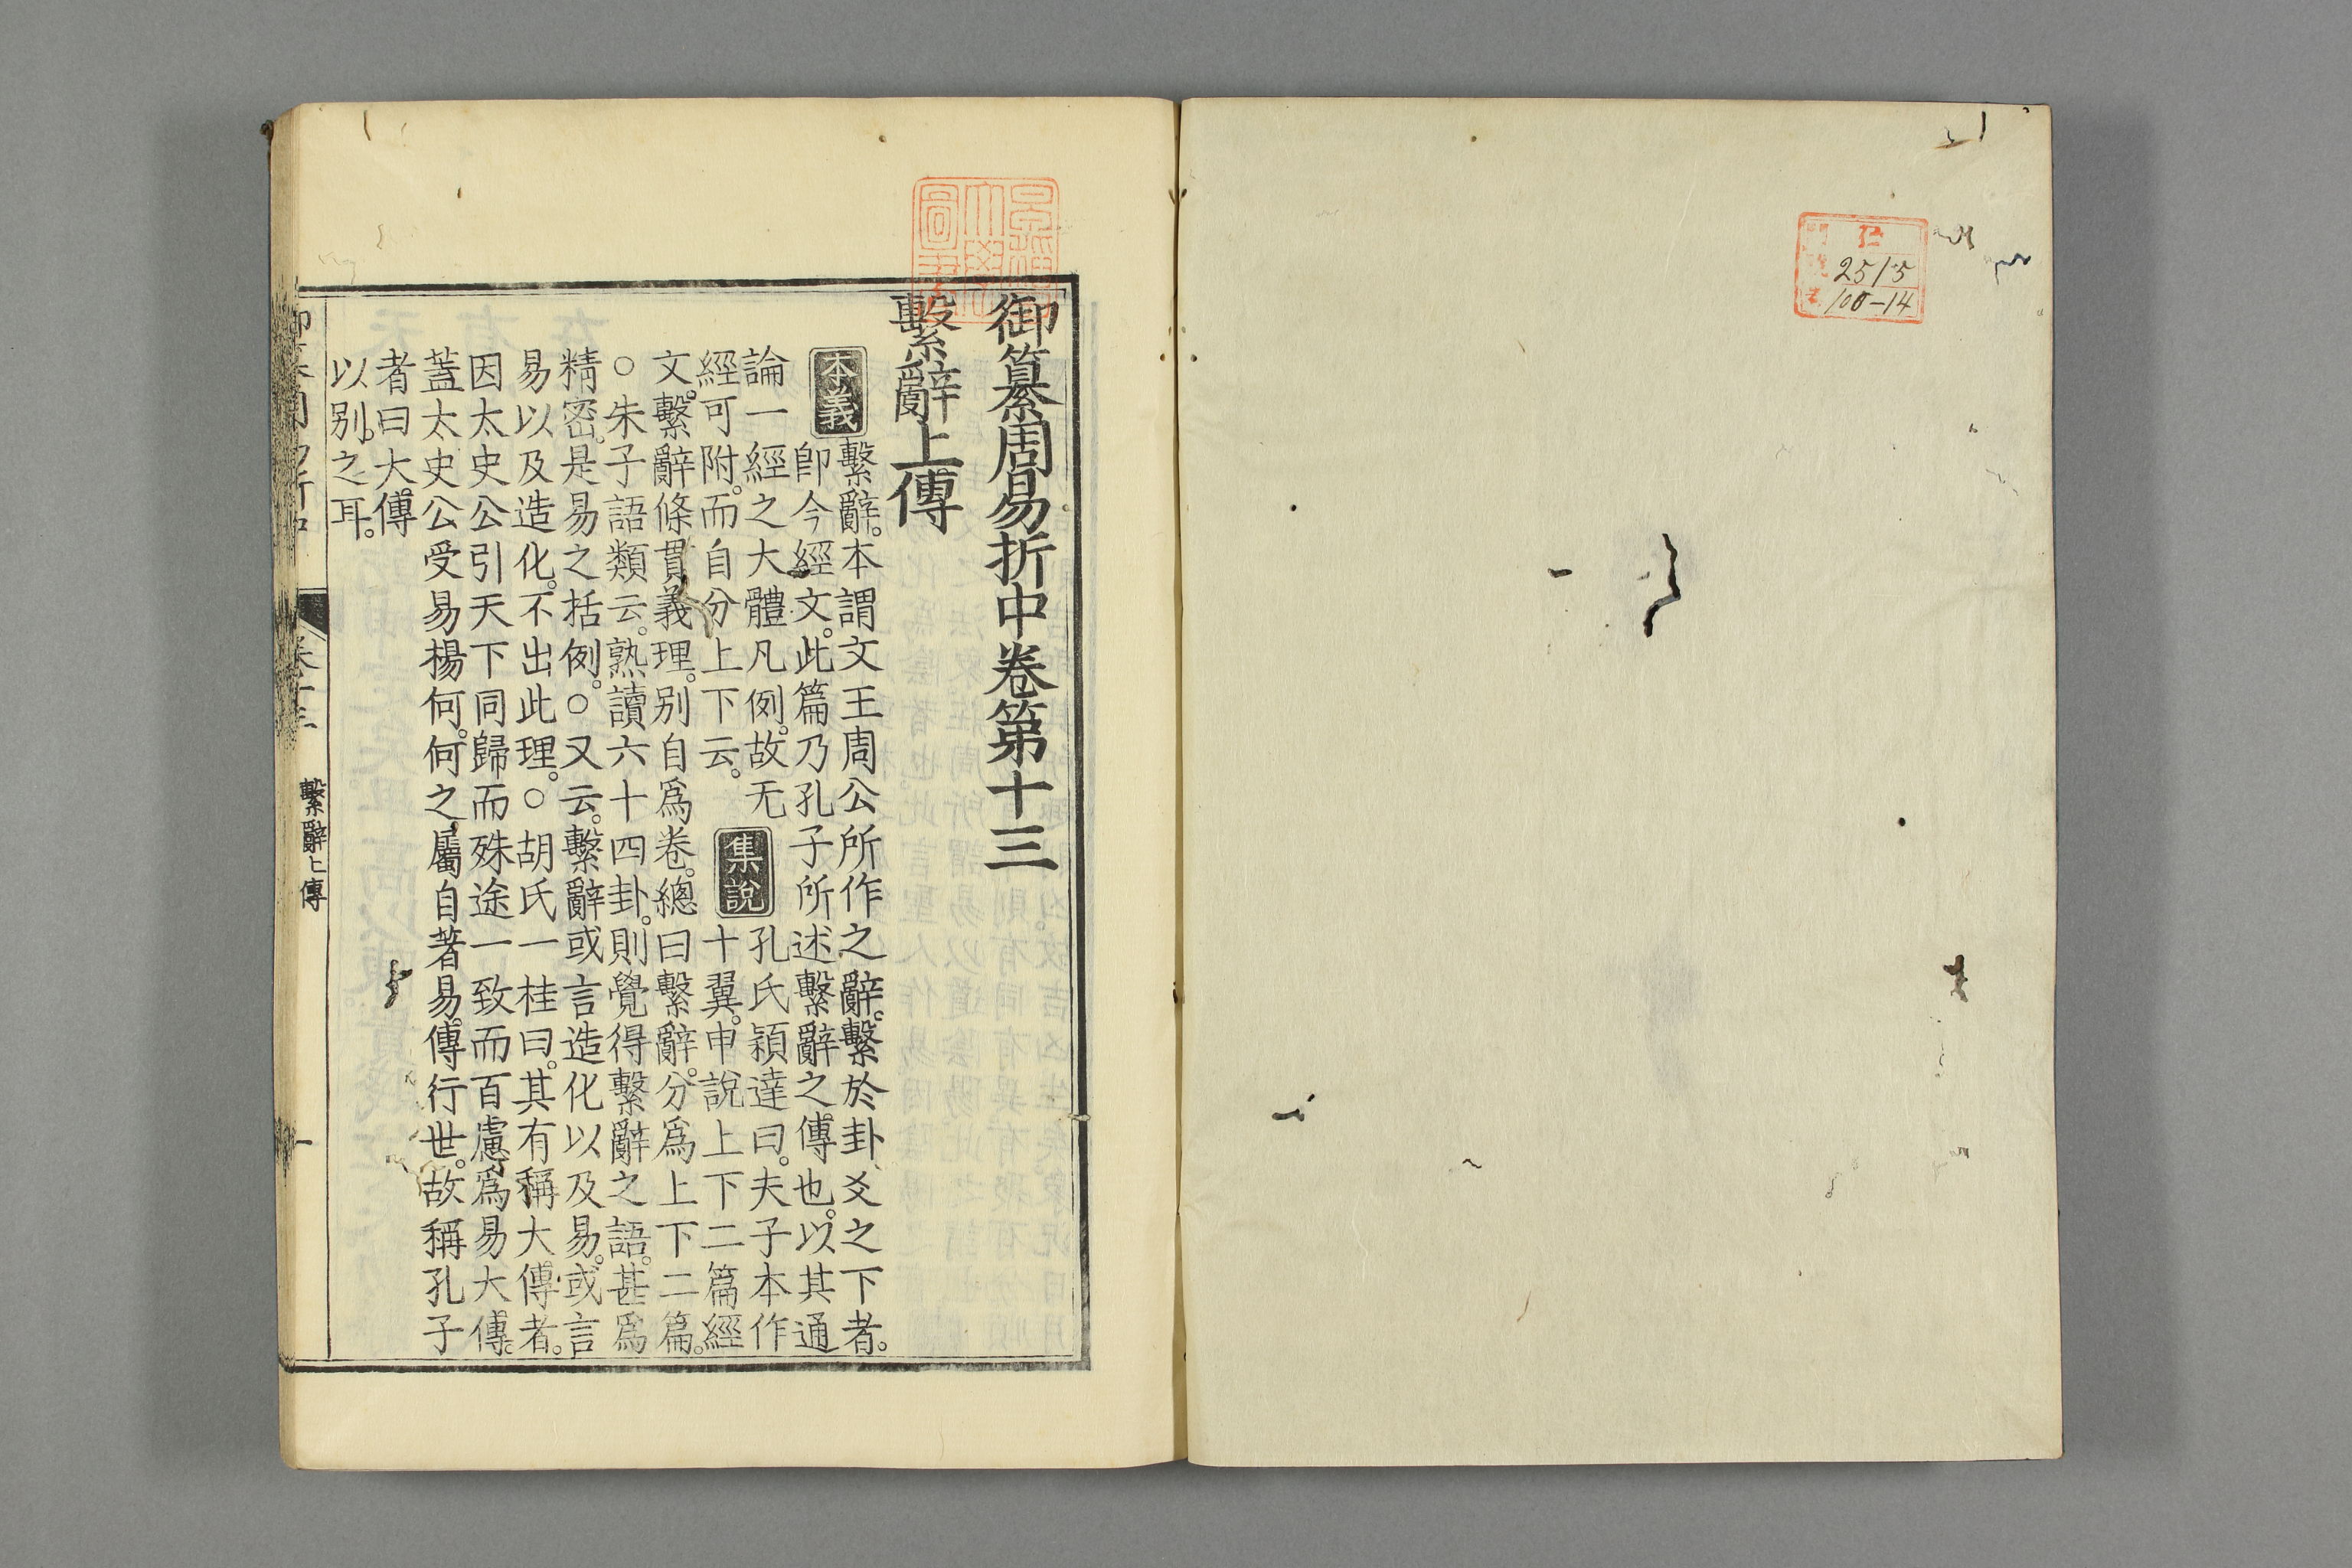 仁
2515
100-14
御纂周易折中卷第十三
繫辭上傳
本義
繫辭。本謂文王周公所作之辭。繫於卦爻之下者。
卽今經文。此篇乃孔子所述繫辭之傳也。以其通
論一經之大體凡例。故无
經可附。而自分上下云。
集說
孔氏穎達曰。夫子本作
十翼。申說上下二篇經
文。繫辭條貫義理。别自爲卷。總曰繫辭。分爲上下二篇。
○朱子語類云。熟讀六十四卦。則覺得繫辭之語。甚爲
精密。是易之括例。○又云。繫辭或言造化以及易。或言
易以及造化。不出此理。○胡氏一桂曰。其有稱大傳者。
因太史公引天下同歸而殊途一致而百慮。爲易大傳。
蓋太史公受易楊何。何之屬自著易傳行世。故稱孔子
者曰大傳
以别之耳。
卷十三
繫辭上傳
一